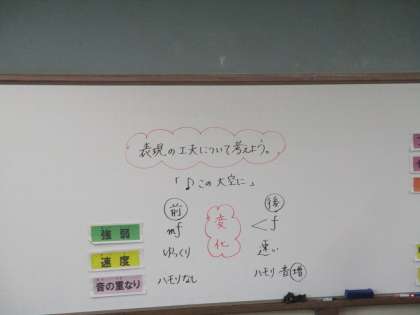 表現の工夫について考えよう。
「♪この大空に」
前 変化 後
強弱 mf < f
速度 ゆっくり 速い
音の重なり ハモリなし ハモリ 音増